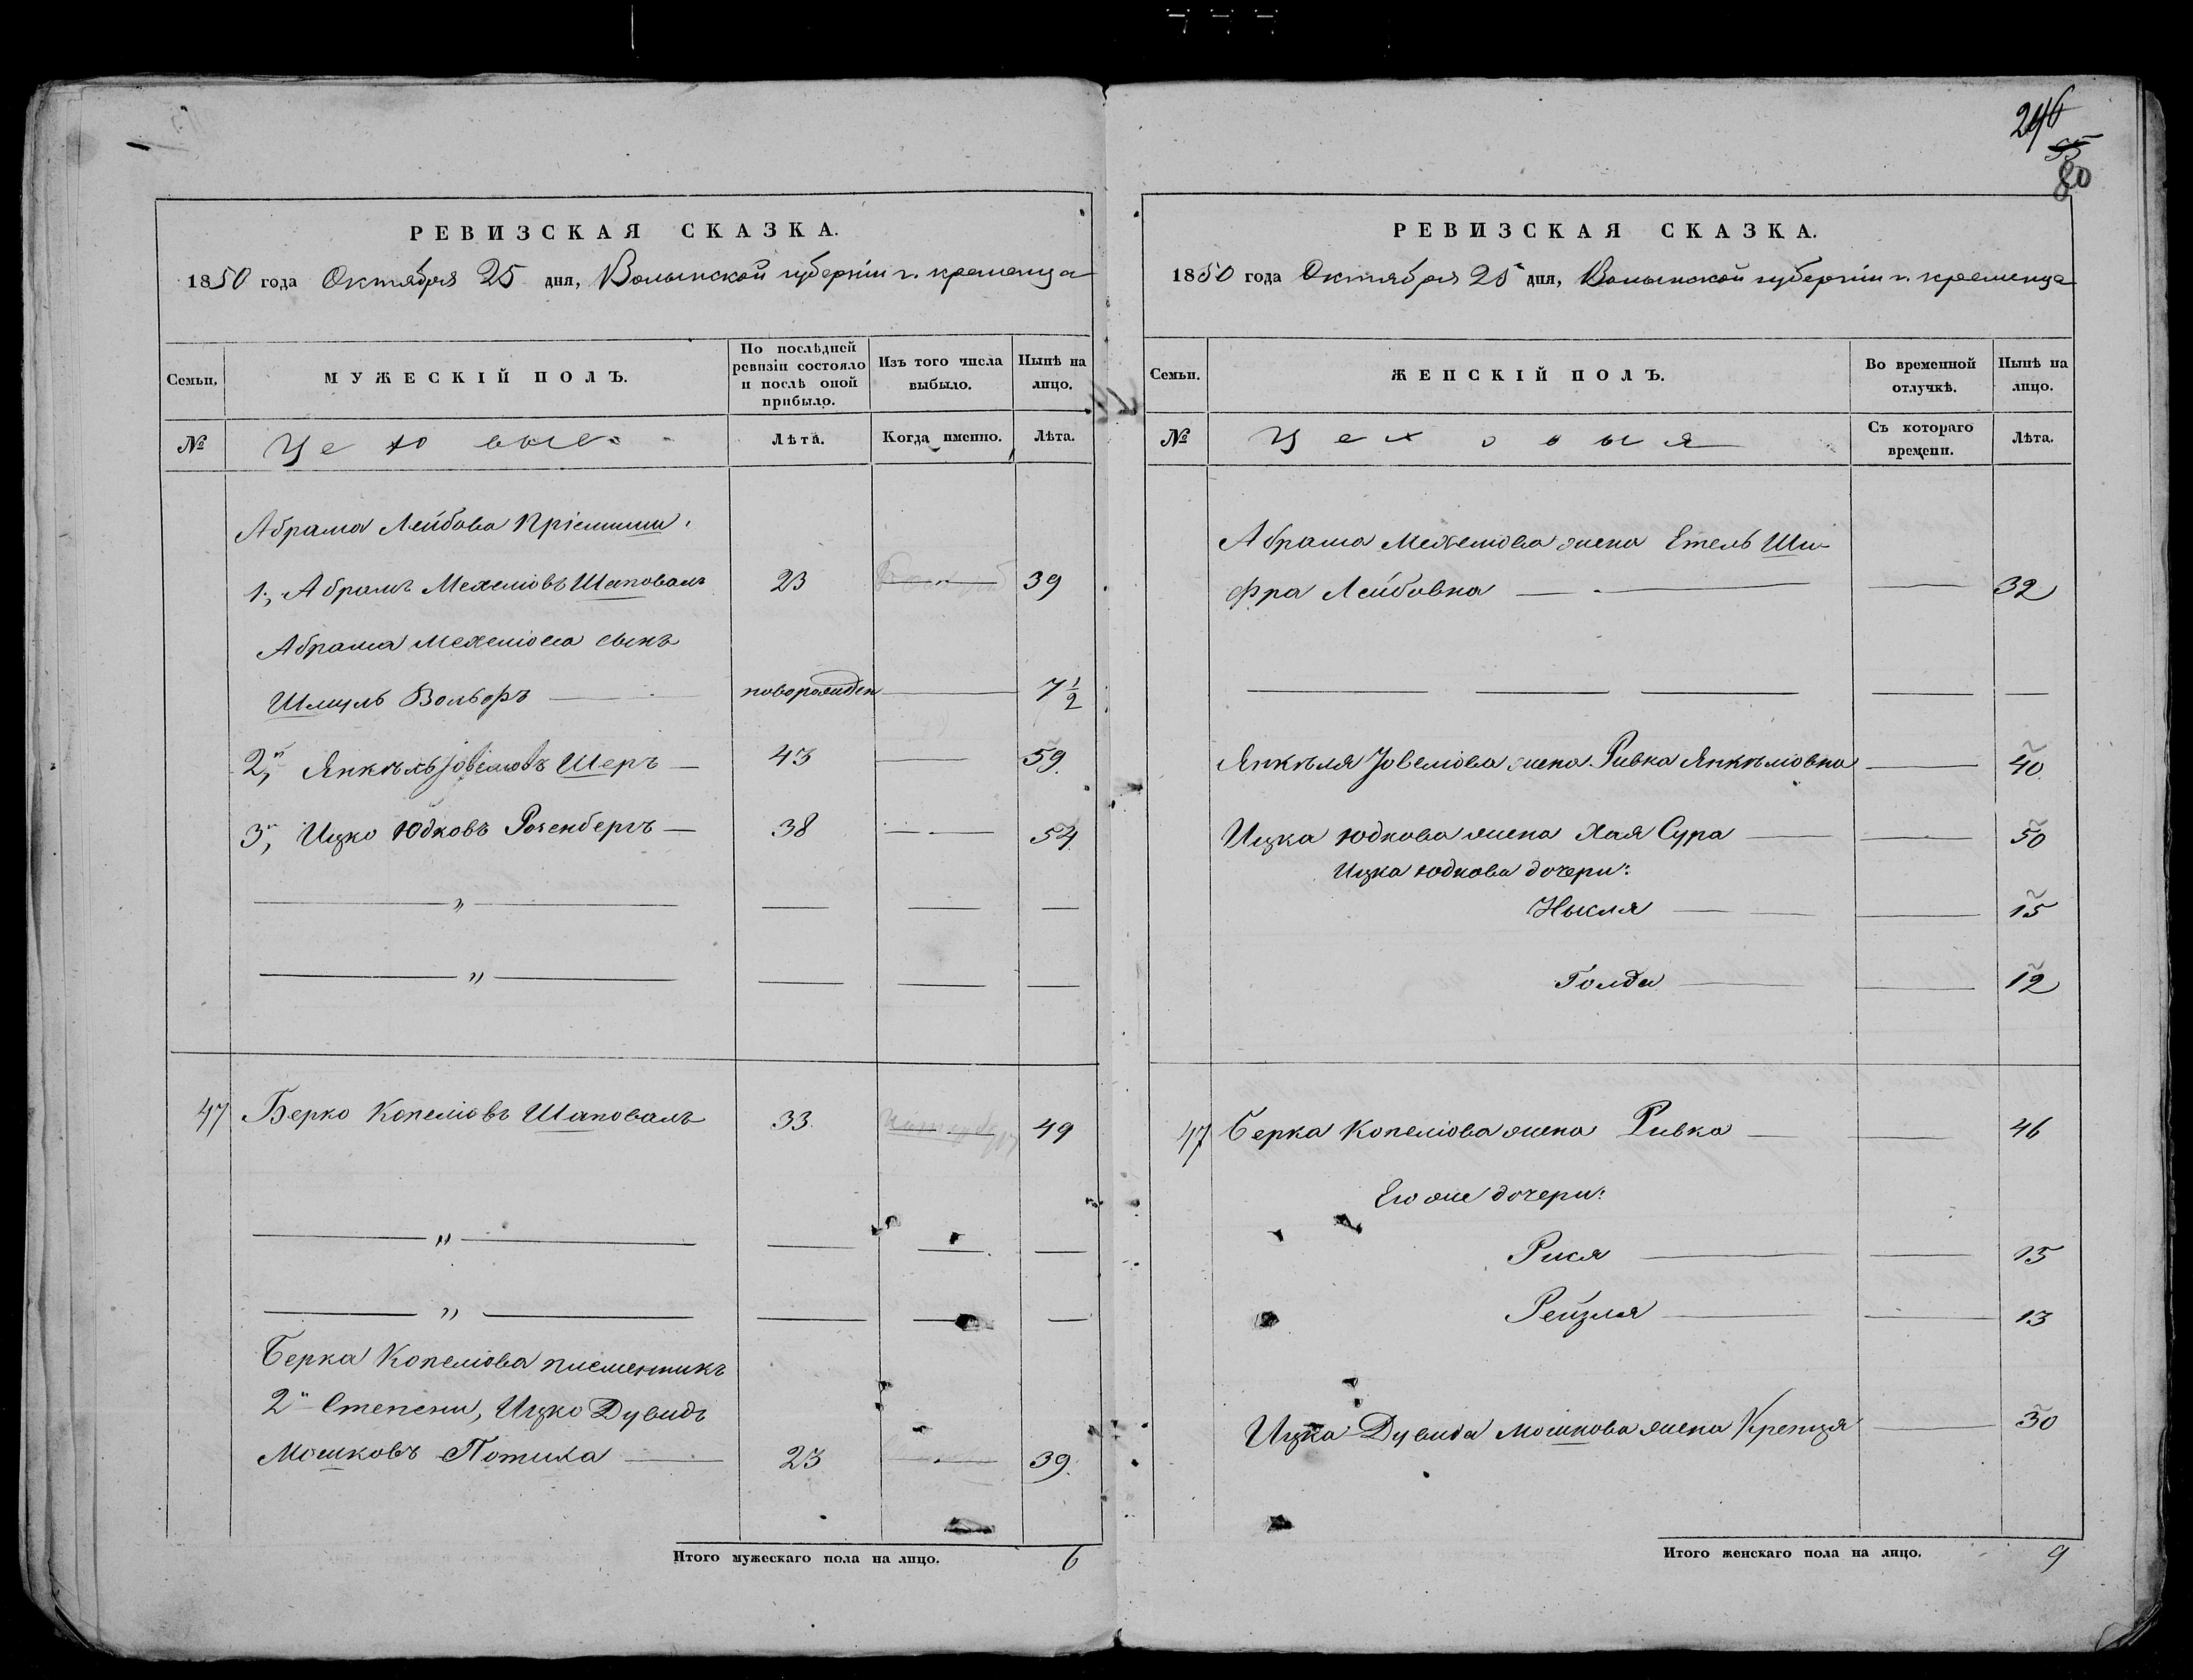 246
55
80
РЕВИЗСКАЯ СКАЗКА.
1850 года Октября 25 дня, Волынской губерніи г. кременца
Семьи.
МУЖЕСКІЙ ПОЛЪ.
По послѣдней ревизіи состояло и послѣ оной прибыло.
Изъ того числа выбыло.
Нынѣ на лицо.
№
Цеховые
Лѣта.
Когда именно.
Лѣта.
Абрама Лейбова Пріемыши
1, Абрамъ Мехелювъ Шаповалъ 23 39
Абрама Мехелюва сынъ
Шмуль Вольфъ новорожден 7 1/2
2й, Янкѣль Іовелювъ Шеръ 43 59
3й, Ицко Юдковъ Розенбергъ 38 54
"
"
47 Берко Копелювъ Шаповалъ 33 49
"
"
Берка Копелюва племенникъ
2й Степени, Ицко Дувидъ
Мошковъ Потиха 23 39
Итого мужескаго пола на лицо. 6
РЕВИЗСКАЯ СКАЗКА.
1850 года Октября 25 дня, Волынской губерніи г. кременца
Семьи.
ЖЕНСКІЙ ПОЛЪ.
Во временной отлучкѣ.
Нынѣ на лицо.
№
Цеховыя
Съ котораго времени.
Лѣта.
Абрама Мехелюва жена Етель Ши-
фра Лейбовна 32
Янкѣля Іовелюва жена Ривка Янкѣлювна 40
Ицка Юдкова жена Хая Сура 50
Ицка Юдкова дочери:
Нысля 15
Голда 12
47 Берка Копелюва жена Ривка 46
Его же дочери:
Рися 15
Рейзля 13
Ицка Дувида Мошкова жена Кренця 30
Итого женскаго пола на лицо. 9